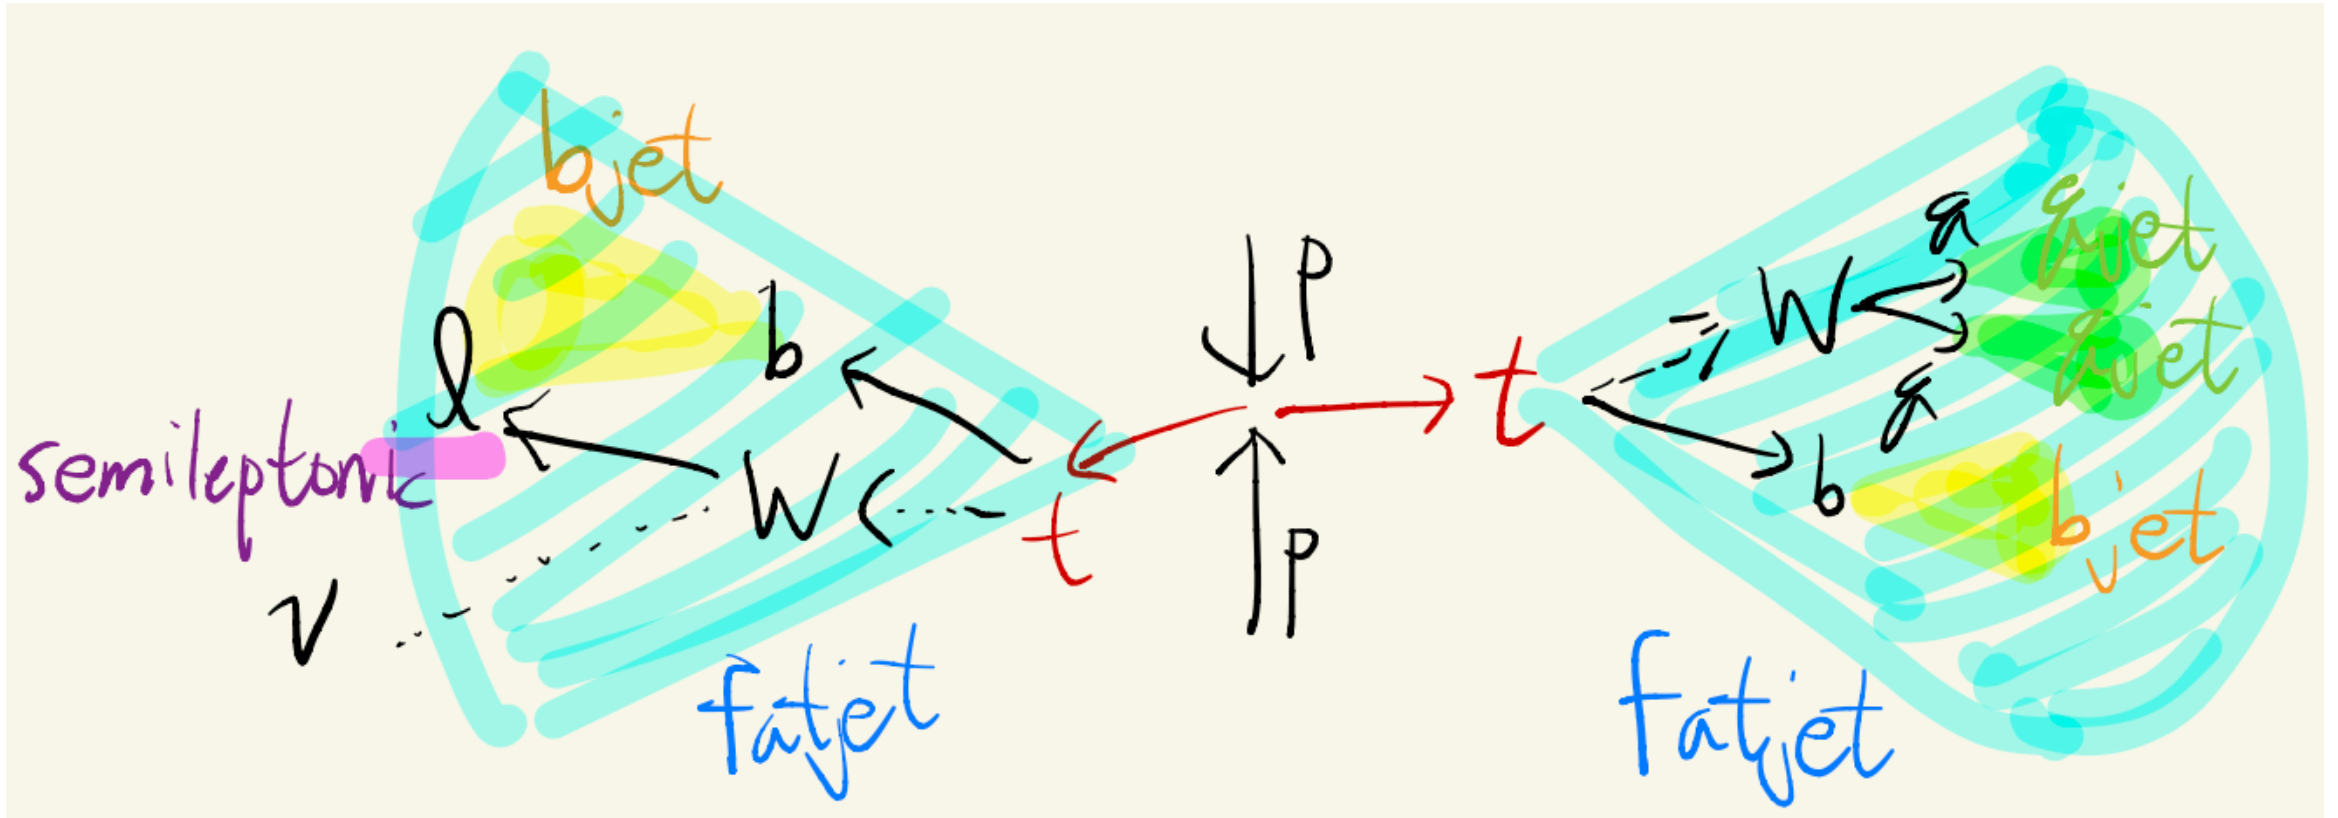 bjet
l
b
semileptonic
W
ν
t
fatjet
p
p
t
W
q
q
qjet
qjet
b
bjet
fatjet